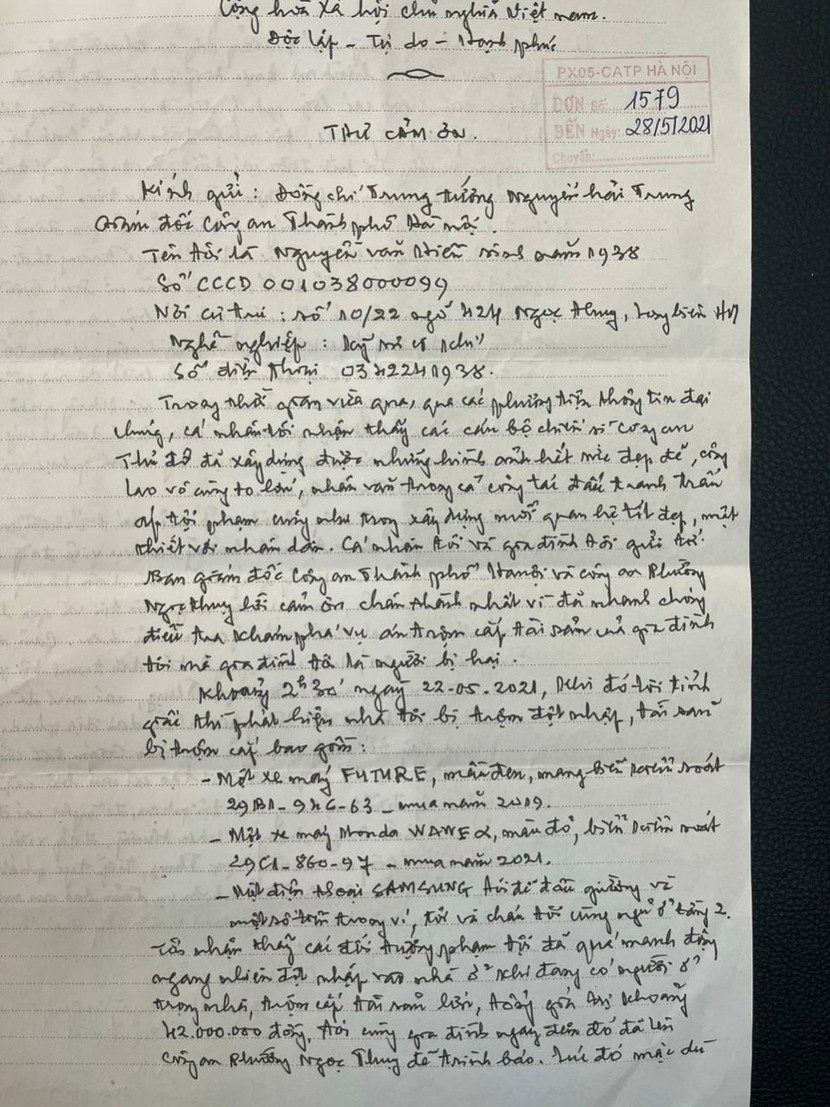 Cộng hòa xã hội chủ nghĩa Việt nam.
Độc lập - Tự do - Hạnh phúc
PX05-CATP HÀ NỘI
ĐƠN Số: 1579
ĐẾN Ngày: 28/5/2021
Chuyển:
THƯ CẢM ƠN.
Kính gửi: Đồng chí Trung tướng Nguyễn hải Trung
Giám đốc Công an Thành phố Hà nội.
Tên tôi là Nguyễn văn Hiến sinh năm 1938
Số CCCD 001038000099
Nơi cư trú: số 10/22 ngõ 424 Ngọc thụy, Long biên HN
Nghề nghiệp: Kỹ sư cơ khí
Số điện thoại 0342241938.
Trong thời gian vừa qua, qua các phương tiện thông tin đại
chúng, cá nhân tôi nhận thấy các cán bộ chiến sĩ Công an
Thủ đô đã xây dựng được những hình ảnh hết sức đẹp đẽ, công
lao vô cùng to lớn, nhân văn trong cả công tác đấu tranh trấn
áp tội phạm cũng như trong xây dựng mối quan hệ tốt đẹp, mật
thiết với nhân dân. Cá nhân tôi và gia đình tôi gửi tới
Ban giám đốc Công an Thành phố Hà nội và công an Phường
Ngọc thụy lời cảm ơn chân thành nhất vì đã nhanh chóng
điều tra khám phá vụ án trộm cắp tài sản của gia đình
tôi mà gia đình tôi là người bị hại.
Khoảng 2h30' ngày 22-05-2021, khi đó tôi tỉnh
giấc thì phát hiện nhà tôi bị trộm đột nhập, tài sản
bị trộm cắp bao gồm:
- Một xe máy FUTURE, màu đen, mang biển kiểm soát
29B1-946-63 - mua năm 2019.
- Một xe máy Honda WAWE α, màu đỏ, biển kiểm soát
29C1-860-97 - mua năm 2021.
- Một điện thoại SAMSUNG tôi để đầu giường và
một số tiền trong ví, tôi và cháu tôi cùng ngủ ở tầng 2.
Tôi nhận thấy các đối tượng phạm tội đã quá manh động
ngang nhiên đột nhập vào nhà ở khi đang có người ở
trong nhà, trộm cắp tài sản lớn, tổng giá trị khoảng
42.000.000 đồng, tôi cùng gia đình ngay đêm đó đã lên
Công an Phường Ngọc Thụy để trình báo. Lúc đó mặc dù